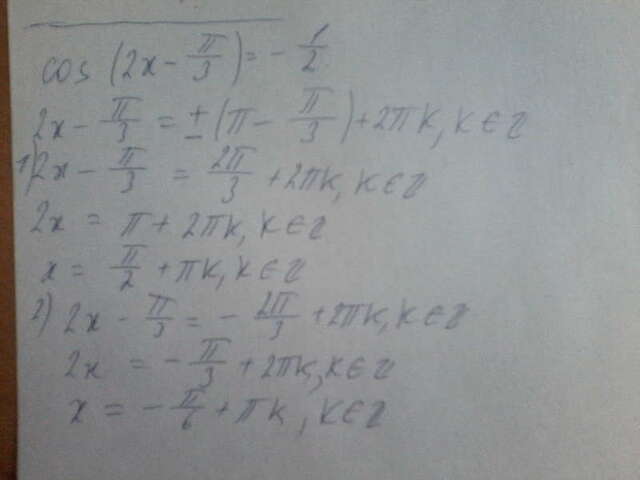 cos (2x - π/3) = - 1/2
2x - π/3 = ± (π - π/3) + 2πk, k ∈ z
1) 2x - π/3 = 2π/3 + 2πk, k ∈ z
2x = π + 2πk, k ∈ z
x = π/2 + πk, k ∈ z
2) 2x - π/3 = - 2π/3 + 2πk, k ∈ z
2x = - π/3 + 2πk, k ∈ z
x = - π/6 + πk, k ∈ z